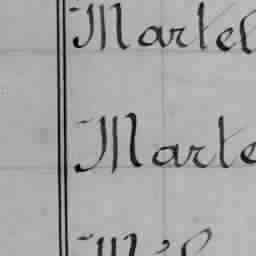 Martel
Marte